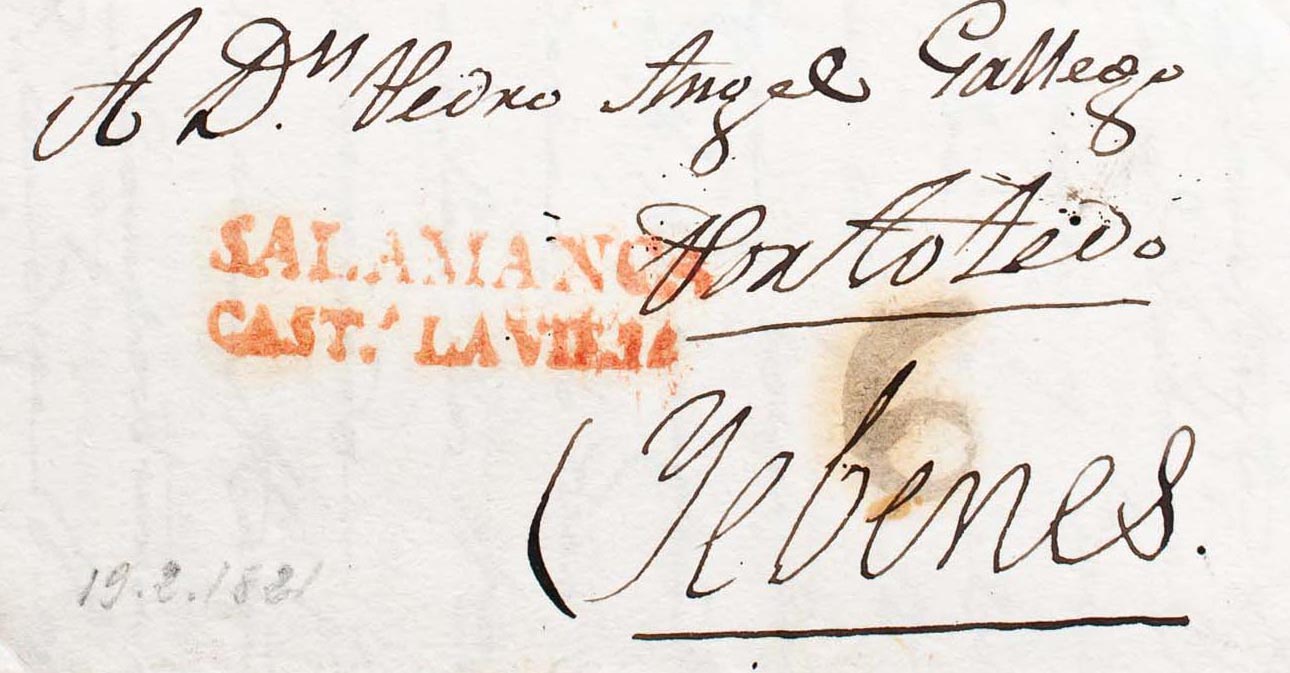 A Dn. Pedro Angel Gallego
Por Toledo
SALAMANCA
CAST.A LA VIEJA
6
Yebenes.
19.2.1821